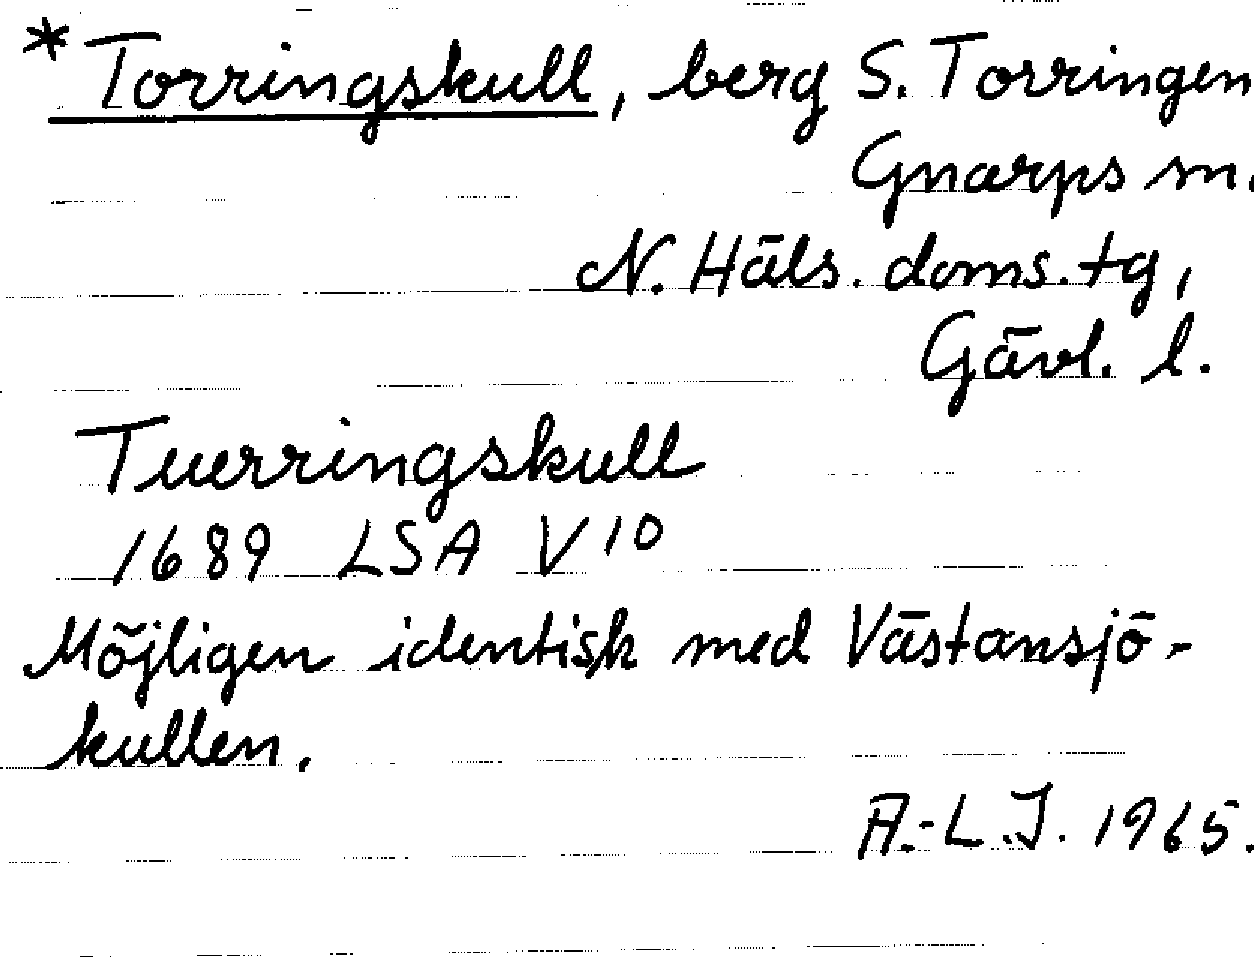 * Torringskull, berg S. Torringen
Gnarps sn.
N. Häls. doms. tg,
Gävl. l.
Tuerringskull
1689 LSA V 10
Möjligen identisk med Västansjö-
kullen.
A.-L.J. 1965.